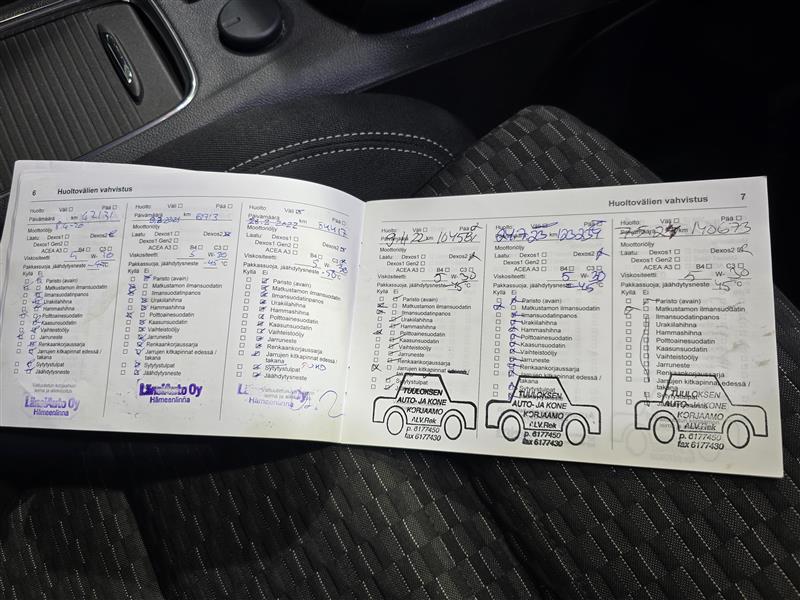 6 Huoltovälien vahvistus
Huolto: Väli Pää
Päivämäärä km 42131
Moottoriöljy
Laatu: Dexos1 Dexos2
Dexos1 Gen2
ACEA A3 B4 C3
Viskositeetti W-
Pakkassuoja, jäähdytysneste -45°C
Kyllä Ei
Paristo (avain)
Matkustamon ilmansuodatin
Ilmansuodatinpanos
Urakiilahihna
Hammashihna
Polttoainesuodatin
Kaasunsuodatin
Vaihteistoöljy
Jarruneste
Renkaankorjaussarja
Jarrujen kitkapinnat edessä /
takana
Sytytystulpat
Jäähdytysneste
LänsiAuto Oy
Hämeenlinna
Huolto: Väli Pää
Päivämäärä km
Moottoriöljy
Laatu: Dexos1 Dexos2
Dexos1 Gen2
ACEA A3 B4 C3
Viskositeetti 5 W-30
Pakkassuoja, jäähdytysneste -45°C
Kyllä Ei
Paristo (avain)
Matkustamon ilmansuodatin
Ilmansuodatinpanos
Urakiilahihna
Hammashihna
Polttoainesuodatin
Kaasunsuodatin
Vaihteistoöljy
Jarruneste
Renkaankorjaussarja
Jarrujen kitkapinnat edessä /
takana
Sytytystulpat
Jäähdytysneste
LänsiAuto Oy
Hämeenlinna
Huolto: Väli Pää
Päivämäärä km
Moottoriöljy
Laatu: Dexos1 Dexos2
Dexos1 Gen2
ACEA A3 B4 C3
Viskositeetti 5 W-30
Pakkassuoja, jäähdytysneste -50°C
Kyllä Ei
Paristo (avain)
Matkustamon ilmansuodatin
Ilmansuodatinpanos
Urakiilahihna
Hammashihna
Polttoainesuodatin
Kaasunsuodatin
Vaihteistoöljy
Jarruneste
Renkaankorjaussarja
Jarrujen kitkapinnat edessä /
takana
Sytytystulpat
Jäähdytysneste
LänsiAuto Oy
Hämeenlinna
Huoltovälien vahvistus 7
Huolto: Väli Pää
Päivämäärä km
Moottoriöljy
Laatu: Dexos1 Dexos2
Dexos1 Gen2
ACEA A3 B4 C3
Viskositeetti 5 W-30
Pakkassuoja, jäähdytysneste -45°C
Kyllä Ei
Paristo (avain)
Matkustamon ilmansuodatin
Ilmansuodatinpanos
Urakiilahihna
Hammashihna
Polttoainesuodatin
Kaasunsuodatin
Vaihteistoöljy
Jarruneste
Renkaankorjaussarja
Jarrujen kitkapinnat edessä /
takana
Sytytystulpat
Jäähdytysneste
TUULOKSEN
AUTO- JA KONE
KORJAAMO
ALV.Rek
p. 6177450
fax 6177430
Moottoriöljy
Laatu: Dexos1 Dexos2
Dexos1 Gen2
ACEA A3 B4 C3
Viskositeetti 5 W-30
Pakkassuoja, jäähdytysneste -45°C
Kyllä Ei
Paristo (avain)
Matkustamon ilmansuodatin
Ilmansuodatinpanos
Urakiilahihna
Hammashihna
Polttoainesuodatin
Kaasunsuodatin
Vaihteistoöljy
Jarruneste
Renkaankorjaussarja
Jarrujen kitkapinnat edessä /
takana
TUULOKSEN
AUTO- JA KONE
KORJAAMO
ALV.Rek
p. 6177450
fax 6177430
Huolto: Väli Pää
km 140673
Moottoriöljy
Laatu: Dexos1 Dexos2
Dexos1 Gen2
ACEA A3 B4 C3
Viskositeetti 5 W-30
Pakkassuoja, jäähdytysneste 45°C
Kyllä Ei
Paristo (avain)
Matkustamon ilmansuodatin
Ilmansuodatinpanos
Urakiilahihna
Hammashihna
Polttoainesuodatin
Kaasunsuodatin
Vaihteistoöljy
Jarruneste
Renkaankorjaussarja
Jarrujen kitkapinnat edessä /
takana
TUULOKSEN
AUTO- JA KONE
KORJAAMO
ALV.Rek
p. 6177450
fax 6177430